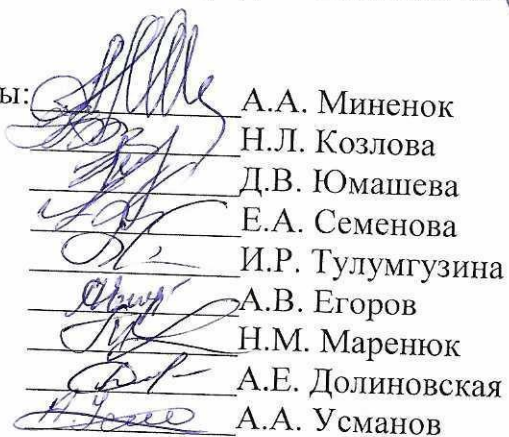 ы: А.А. Миненок
Н.Л. Козлова
Д.В. Юмашева
Е.А. Семенова
И.Р. Тулумгузина
А.В. Егоров
Н.М. Маренюк
А.Е. Долиновская
А.А. Усманов